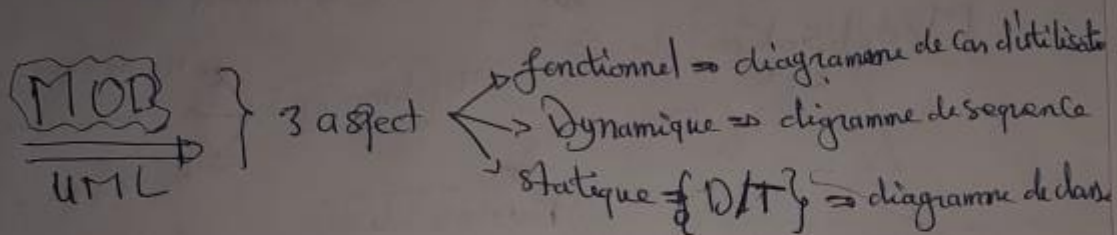 MOD
UML
} 3 aspect
fonctionnel => diagramme de Cas d'utilisat
Dynamique => digramme de sequence
statique { D/T } => diagramme de class